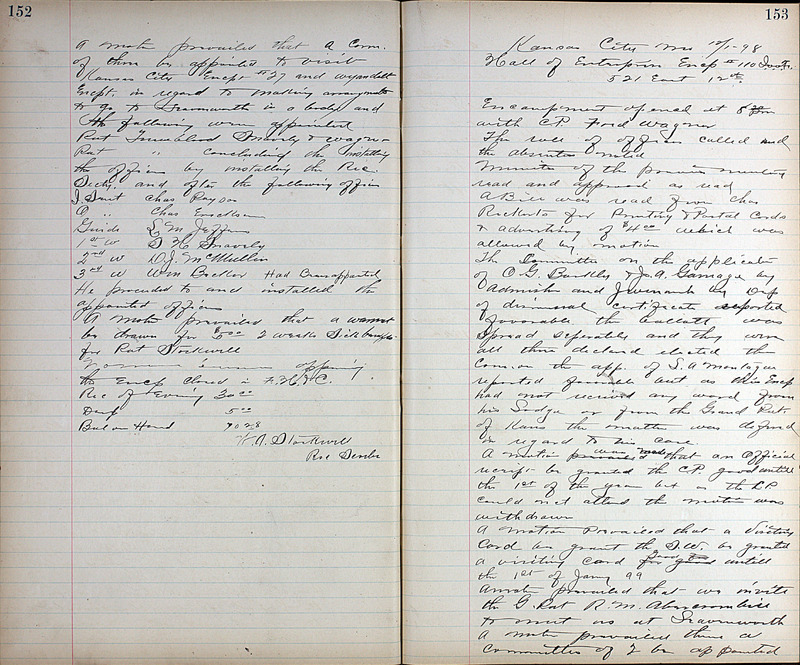 152
A motion prevailed that a Com.
of three be appointed to visit
Kansas City Encpt #27 and Wyandott
Encpt. in regard to making arrangmts
to go to Leavenworth in a body and
the following were appointed
Pat Trueblood Snavely & Wagner
Pat " concluding the installing
the officers by installing the Rec.
Secty. and after the following officers
I Sent Chas Payson
O " Chas Erickson
Guide L M Jeffers
1st W D. H. Snavely
2nd W D. J. McMullin
3rd W Wm Becker Had been appointed
He proceeded to and installed the
appointed officers
A motion prevailed that a warrent
be drawn for $5.00 2 weeks Sick benefits
for Pat Stockwell
appearing
the Encp closed in F. H. & C.
Rec of Evening 30.00
5.00
Bal on Hand
H. A. Stockwell
Rec Scribe
153
Kansas City Mo 12/1-98
Hall of Enterprise Encp #110
521 East 12th
Encampment opened at 8
with C.P. Ford Wagner
The roll of officers called and
the absentees noted
Minutes of the previous meeting
read and approved as read
A Bill was read from Chas
for Printing & Postal Cards
& advertising of $4.00 which was
allowed by motion
The Committee on the application
of O G. & J. A. Gamage by
Admission and by Dep
of dismissal certificate reported
favorable the ballott was
spread seperatly and they were
all three declared elected the
Com. on the app. of S. A Montague
reported favorable but as this Encp
had not received any word from
his Lodge or from the Grand Pat.
of Kans the matter was defered
in regard to his case
A motion was made that an Official
receipt be granted the C.P. good untill
the 1st of the year but as the C.P.
could not attend the motion was
withdrawn
A motion Prevailed that a visiting
Card be grant the S.W. be granted
a visiting card good untill
the 1st of Jany 99
A motion prevailed that we invite
the G. Pat R. M. Abercrombie
to meet us at Leavenworth
A motion prevailed that a
Committee of 2 be appointed